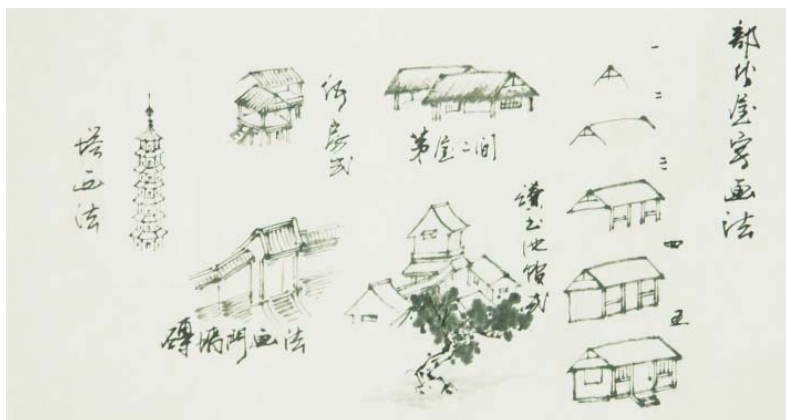 部份屋宇画法
一
二
三
四
五
茅屋二间
讀书池馆式
房式
磚墙門画法
塔画法